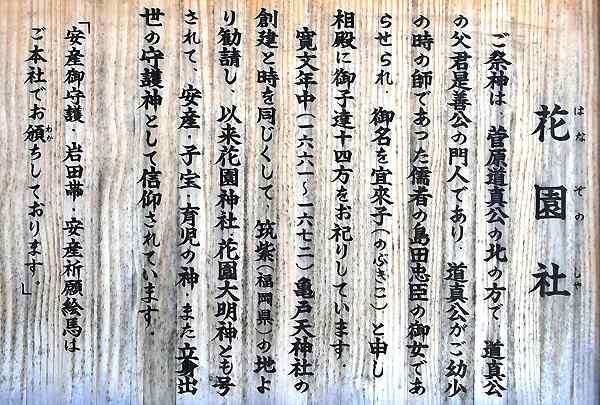 花園社
はなぞのしゃ
ご祭神は、菅原道真公の北の方で、道真公
の父君是善公の門人であり、道真公がご幼少
の時の師であった儒者の島田忠臣の御女であ
らせられ、御名を宜來子(のぶきこ)と申し
相殿に御子達十四方をお祀りしています。
寛文年中(一六六一〜一六七二)亀戸天神社の
創建と時を同じくして、筑紫(福岡県)の地よ
り勧請し、以来花園神社・花園大明神とも号
されて、安産・子宝・育児の神・また立身出
世の守護神として信仰されています。
「安産御守護・岩田帯・安産祈願絵馬は
ご本社でお頒ちしております。」
わか